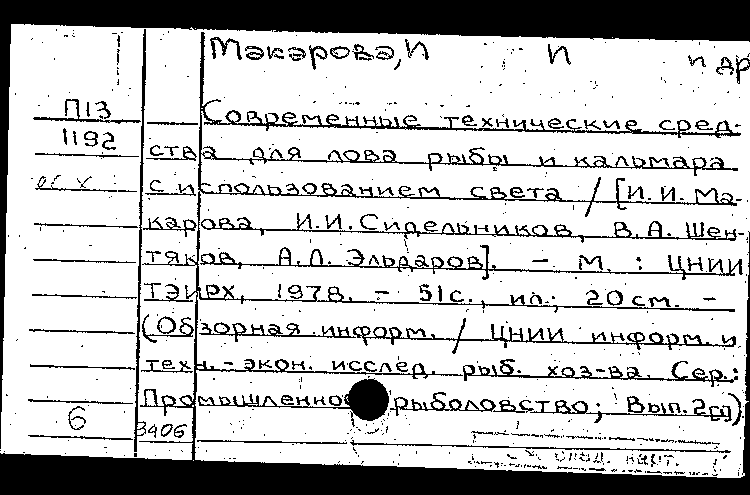 Макарова, И И и др
П13 Современные технические сред-
1192 ства для лова рыбы и кальмара
с использованием света / [И.И. Ма-
карова, И.И. Сидельников, В.А. Шен-
тяков, А.Л. Эльдаров]. - М. : ЦНИИ
ТЭИРХ, 1978. - 51 с., ил.; 20 см. -
(Обзорная информ. / ЦНИИ информ. и
техн.-экон. исслед. рыб. хоз-ва. Сер.:
Промышленное рыболовство; Вып. 2
6 3406